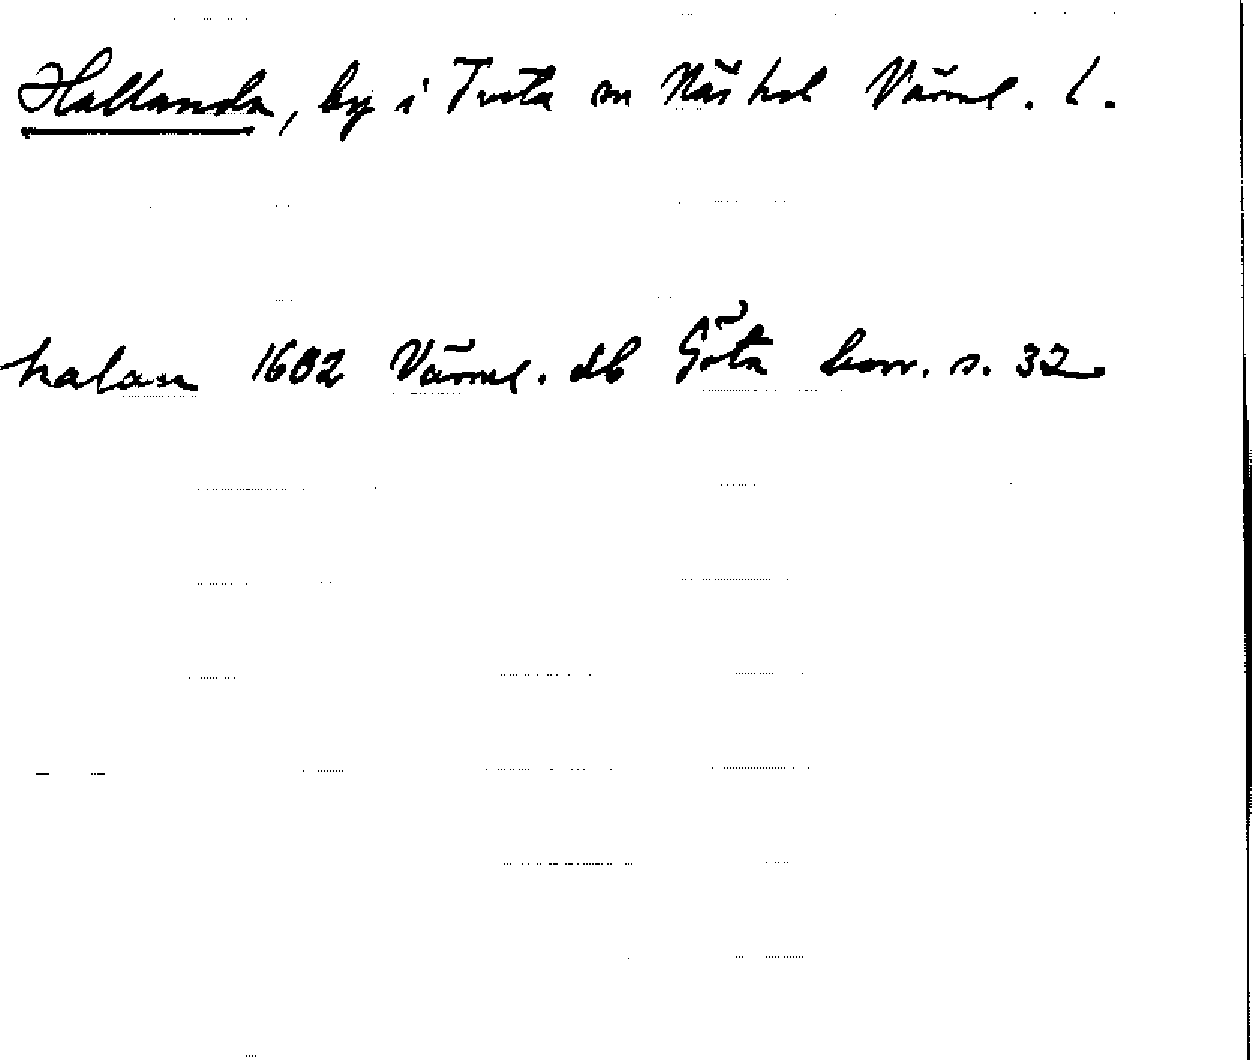 Hallanda, by i Tveta sn Näs hd Värml. l.
halan 1602 Värml. db Göta horr. s. 32